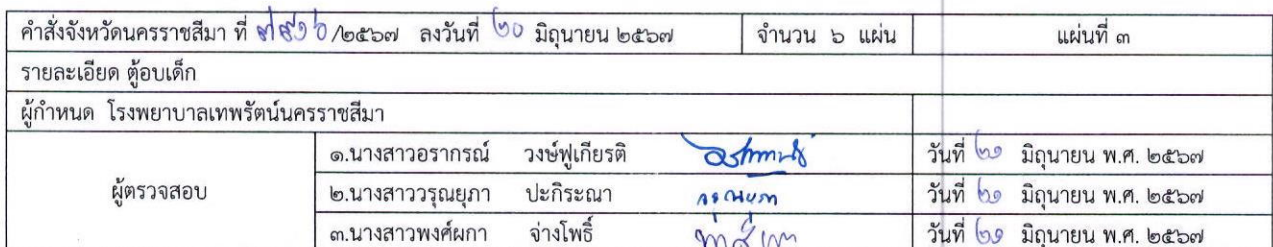 คำสั่งจังหวัดนครราชสีมา ที่ /๒๕๖๗ ลงวันที่ ๒๐ มิถุนายน ๒๕๖๗ จำนวน ๖ แผ่น แผ่นที่ ๓
รายละเอียด ตู้อบเด็ก
ผู้กำหนด โรงพยาบาลเทพรัตน์นครราชสีมา
๑.นางสาวอรากรณ์ วงษ์ฟูเกียรติ วันที่ ๒๑ มิถุนายน พ.ศ. ๒๕๖๗
ผู้ตรวจสอบ ๒.นางสาววรุณยุภา ปะกิระณา วันที่ ๒๑ มิถุนายน พ.ศ. ๒๕๖๗
๓.นางสาวพงศ์ผกา จ่างโพธิ์ วันที่ ๒๑ มิถุนายน พ.ศ. ๒๕๖๗